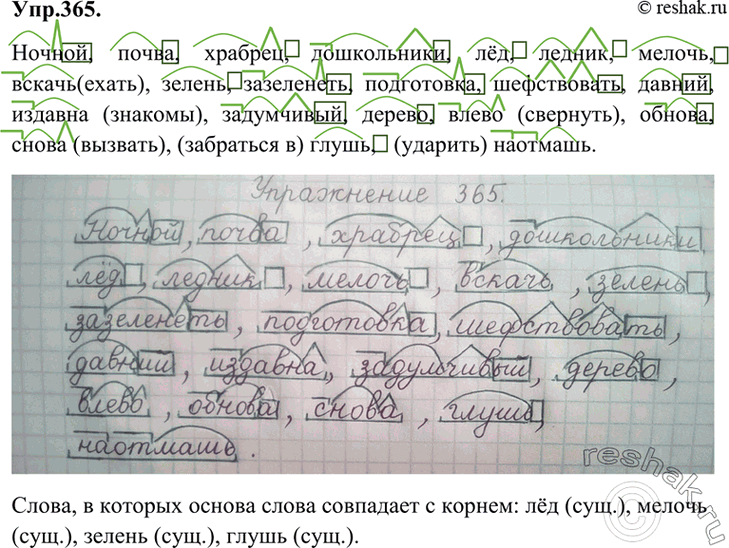 Упр.365.
© reshak.ru
Ночной, почва, храбрец, дошкольники, лёд, ледник, мелочь,
вскачь(ехать), зелень, зазеленеть, подготовка, шефствовать, давний,
издавна (знакомы), задумчивый, дерево, влево (свернуть), обнова,
снова (вызвать), (забраться в) глушь, (ударить) наотмашь.
Упражнение 365.
Ночной, почва, храбрец, дошкольники,
лёд, ледник, мелочь, вскачь, зелень,
зазеленеть, подготовка, шефствовать,
давний, издавна, задумчивый, дерево,
влево, обнова, снова, глушь,
наотмашь.
reshak.ru
Слова, в которых основа слова совпадает с корнем: лёд (сущ.), мелочь
(сущ.), зелень (сущ.), глушь (сущ.).